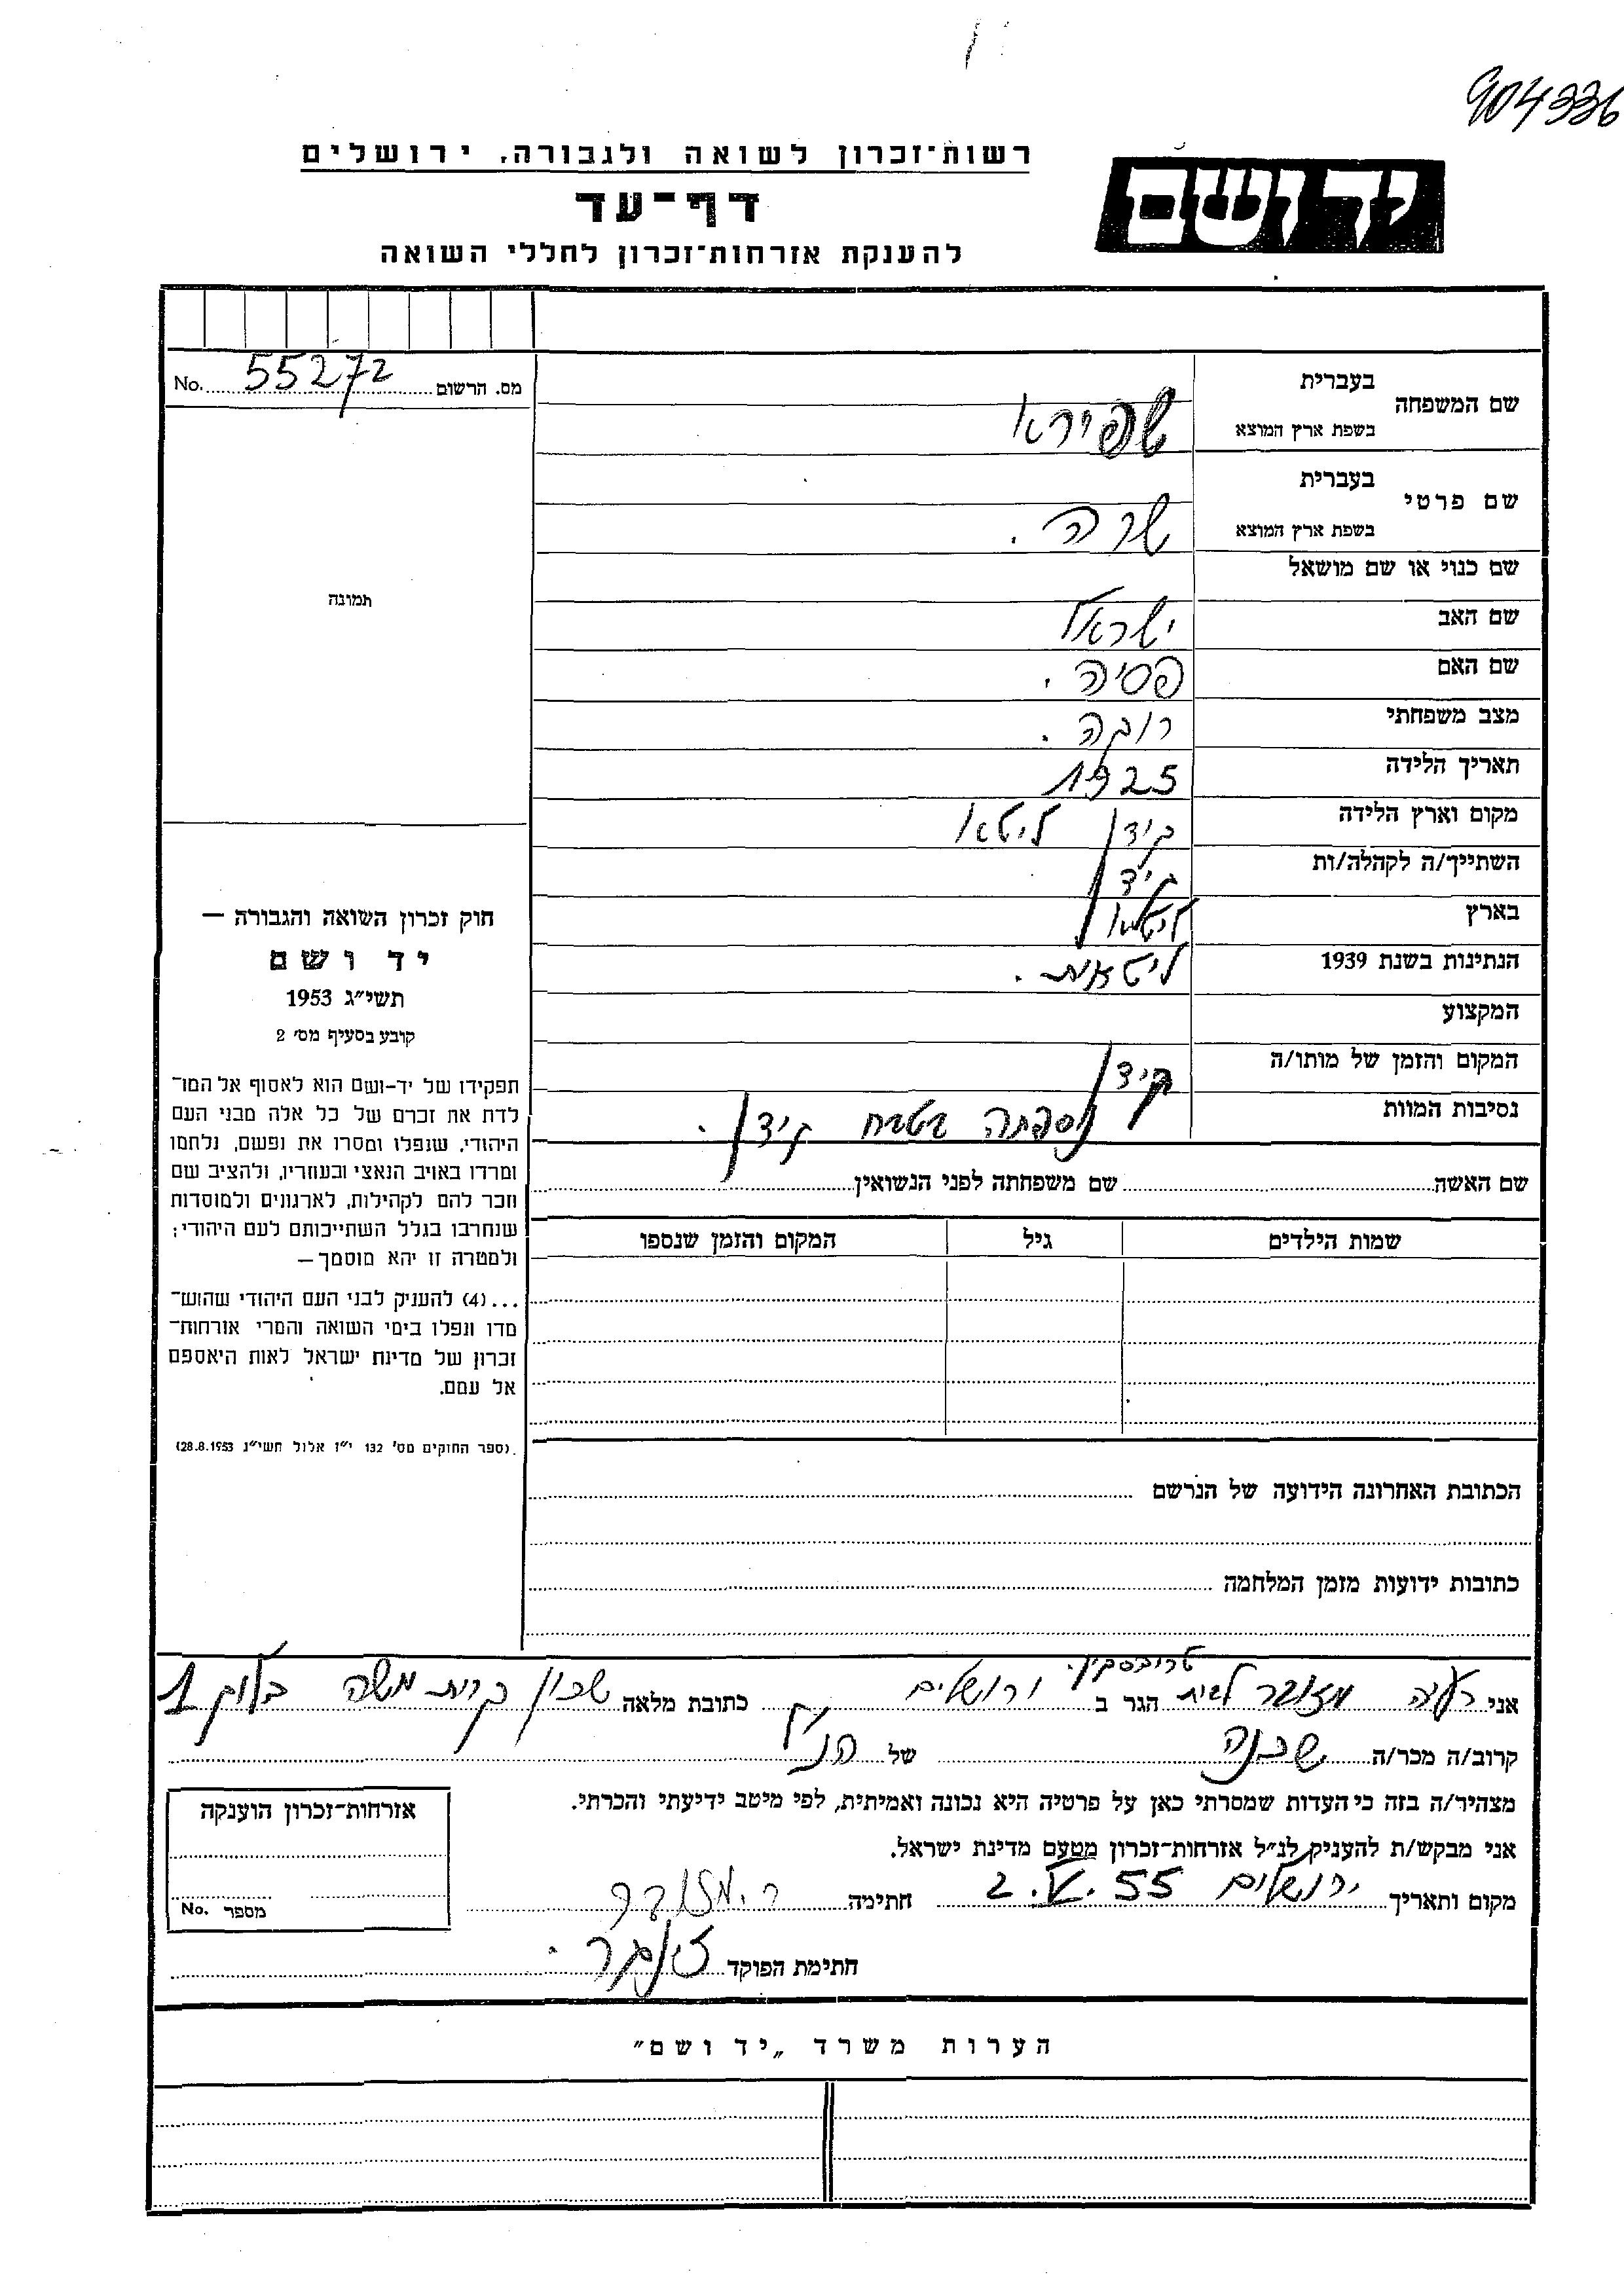 904336
יד ושם
רשות־זכרון לשואה ולגבורה, ירושלים
דף־עד
להענקת אזרחות־זכרון לחללי השואה
מס. הרשום 55272 No.
שם המשפחה בעברית
בשפת ארץ המוצא שפירא
שם פרטי בעברית
בשפת ארץ המוצא שרה.
שם כנוי או שם מושאל
שם האב ישראל
שם האם פסיה.
מצב משפחתי רוקה.
תאריך הלידה 1925
מקום וארץ הלידה קידן ליטא
השתייך/ה לקהלה/ות קידן
בארץ ליטא
הנתינות בשנת 1939 ליטאית.
המקצוע
המקום והזמן של מותו/ה קידן
נסיבות המוות נספתה בטבח קידן.
שם האשה שם משפחתה לפני הנשואין
שמות הילדים גיל המקום והזמן שנספו
הכתובת האחרונה הידועה של הנרשם
כתובות ידועות מזמן המלחמה
תמונה
חוק זכרון השואה והגבורה —
יד ושם
תשי״ג 1953
קובע בסעיף מס׳ 2
תפקידו של יד-ושם הוא לאסוף אל המו־
לדת את זכרם של כל אלה מבני העם
היהודי, שנפלו ומסרו את נפשם, נלחמו
ומרדו באויב הנאצי ובעוזריו, ולהציב שם
וזכר להם לקהילות, לארגונים ולמוסדות
שנחרבו בגלל השתייכותם לעם היהודי;
ולמטרה זו יהא מוסמך —
...(4) להעניק לבני העם היהודי שהוש־
מדו ונפלו בימי השואה והמרי אזרחות־
זכרון של מדינת ישראל לאות היאספם
אל עמם.
(ספר החוקים מס׳ 132 י״ז אלול תשי״ג 28.8.1953)
אני רעיה מזובר לבית הגר ב ירושלים כתובת מלאה שכון קרית משה בלוק 1
קרוב/ה מכר/ה שכנה של הנ״ל
מצהיר/ה בזה כי העדות שמסרתי כאן על פרטיה היא נכונה ואמיתית, לפי מיטב ידיעתי והכרתי.
אני מבקש/ת להעניק לנ״ל אזרחות־זכרון מטעם מדינת ישראל.
מקום ותאריך ירושלים 2.V.55 חתימה ר. מזובר
חתימת הפוקד
אזרחות־זכרון הוענקה
מספר No.
הערות משרד „יד ושם״